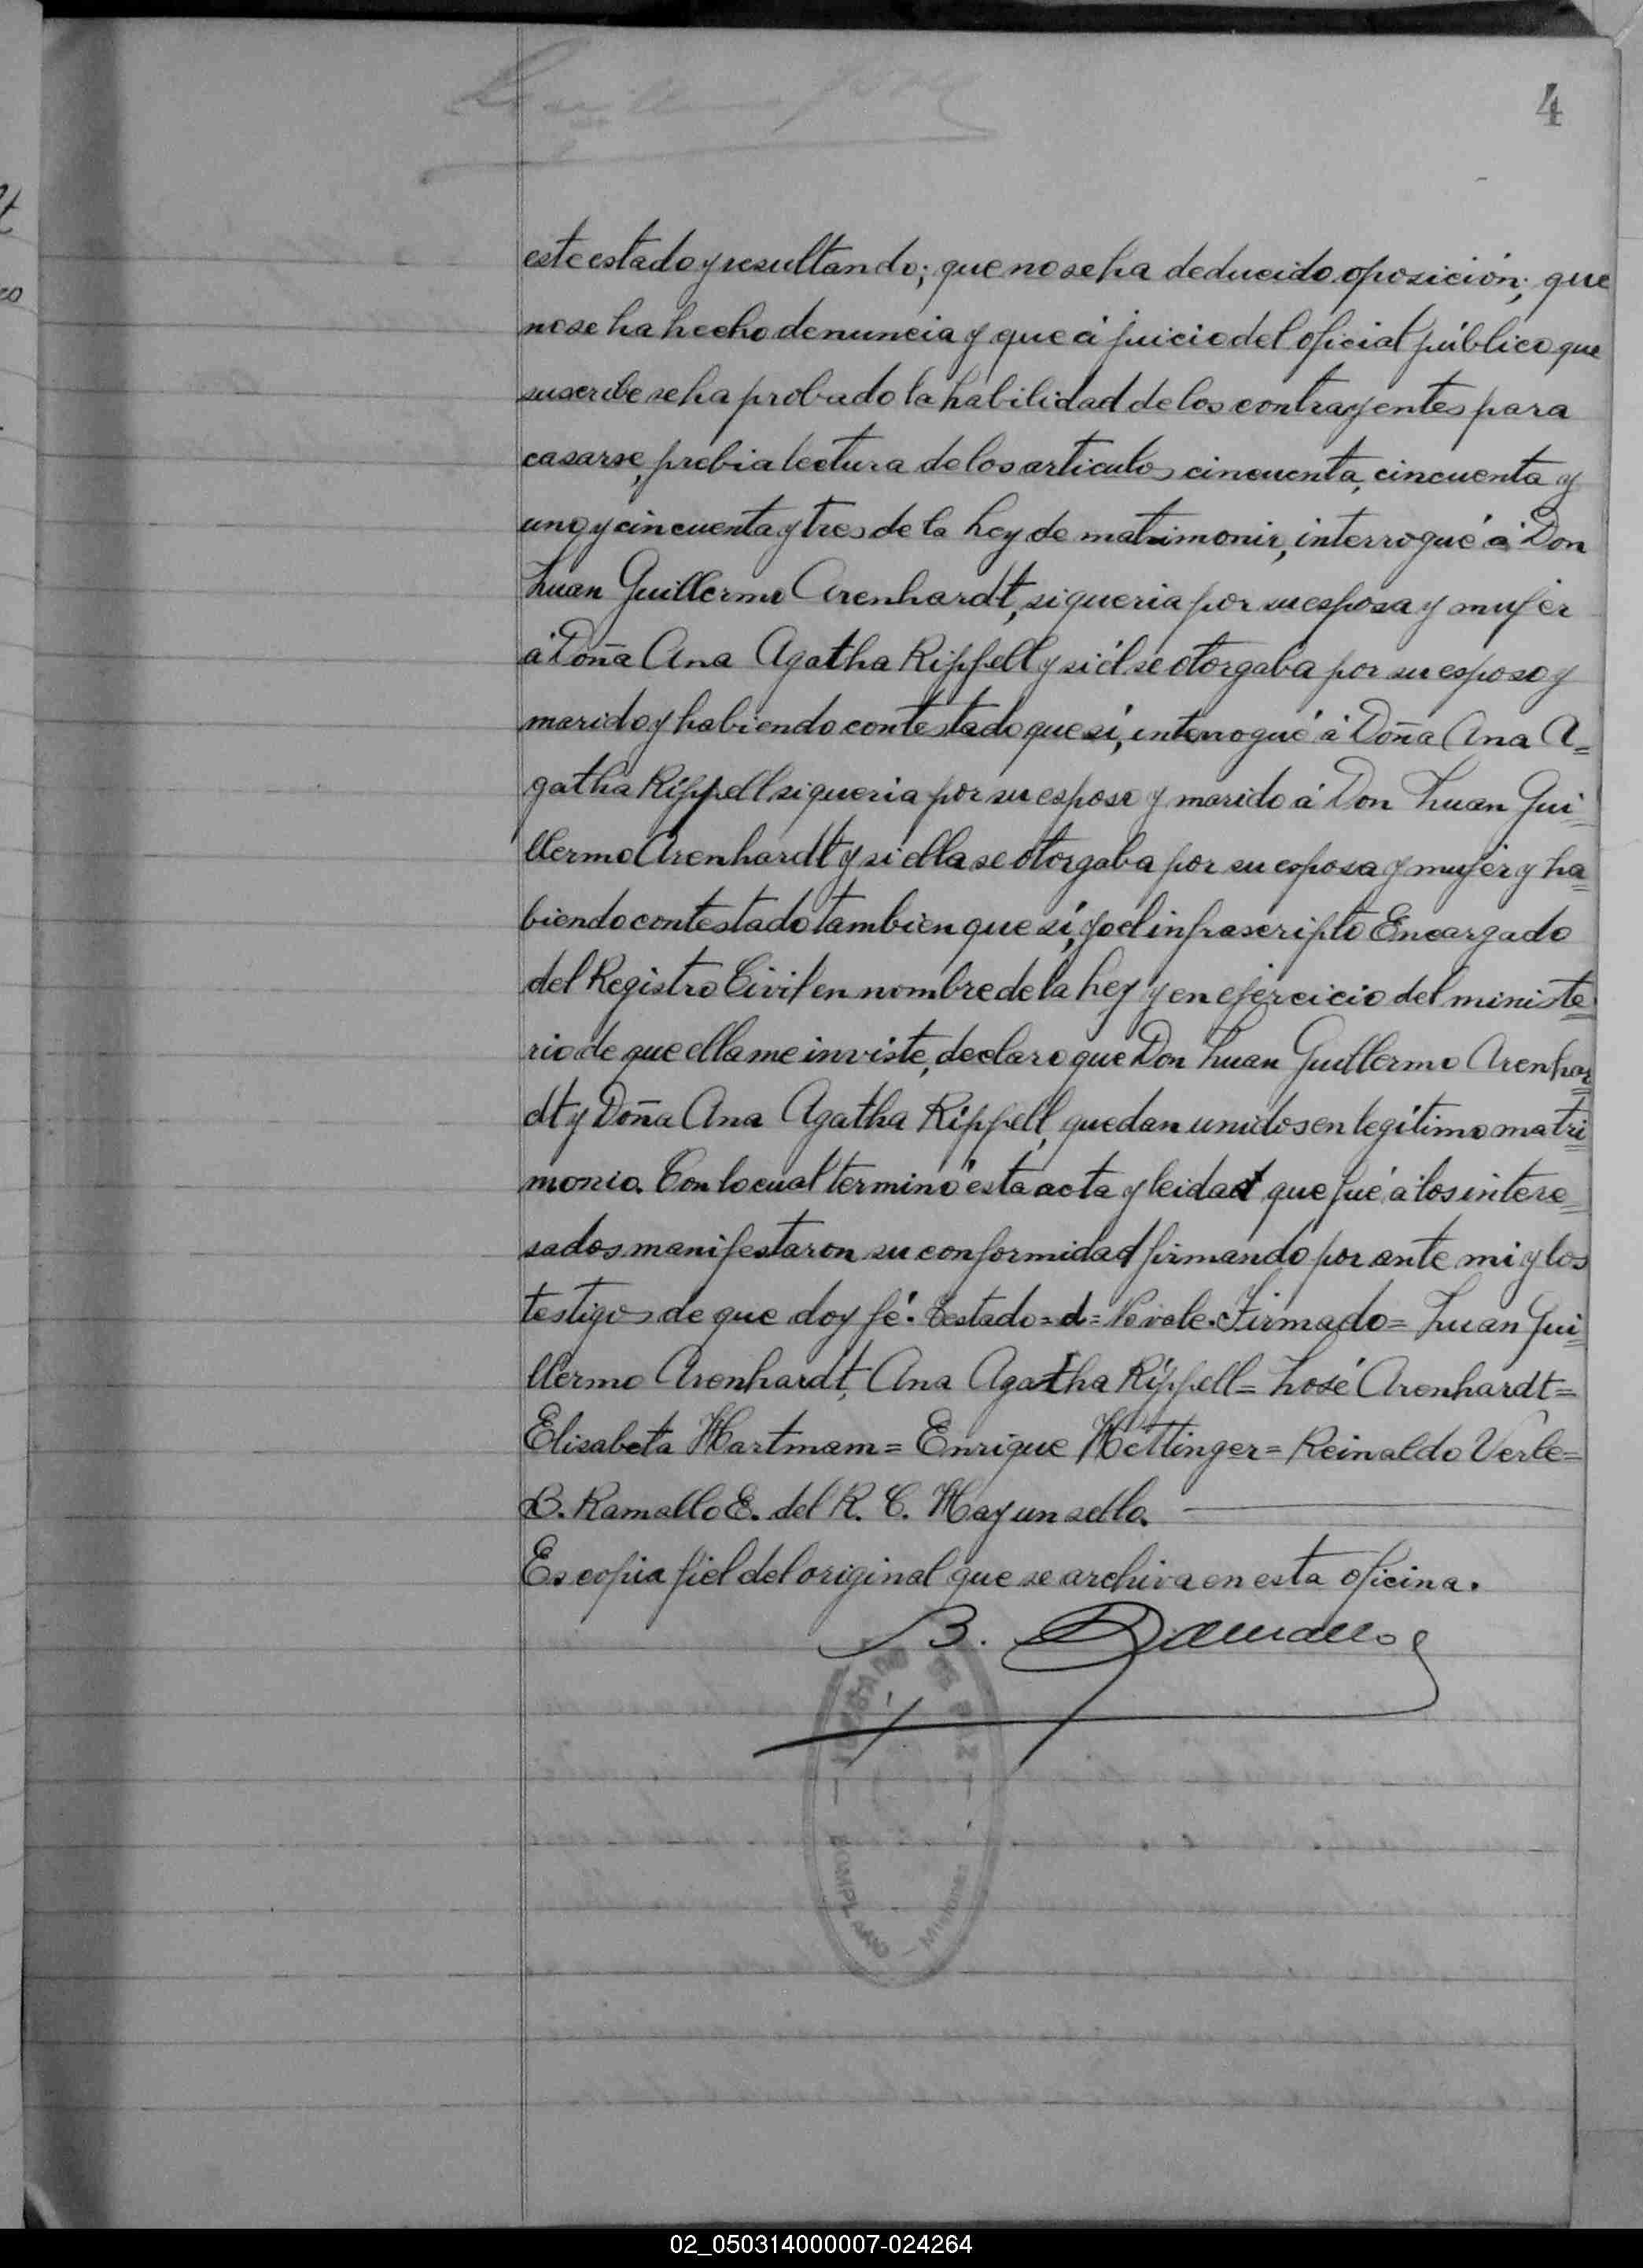 4
este estado y resultando; que no se ha deducido oposición; que
no se ha hecho denuncia y que á juicio del oficial público que
suscribe se ha probado la habilidad de los contrayentes para
casarse, prebia lectura de los articulos cincuenta, cincuenta y
uno y cincuenta y tres de la Ley de matrimonio, interrogué á Don
Juan Guillermo Arenhardt, si queria por su esposa y mujer
á Doña Ana Agatha Rippell y si él se otorgaba por su esposo y
marido y habiendo contestado que sí, interrogué á Doña Ana A=
gatha Rippell si queria por su esposo y marido á Don Juan Gui=
llermo Arenhardt y si ella se otorgaba por su esposa y mujer y ha=
biendo contestado tambien que sí, yo el infrascripto Encargado
del Registro Civil en nombre de la Ley y en ejercicio del ministe=
rio de que ella me inviste, declaro que Don Juan Guillermo Arenhar=
dt y Doña Ana Agatha Rippell, quedan unidos en legítimo matri=
monio. Con lo cual terminó ésta acta y leidad que fué á los intere=
sados manifestaron su conformidad firmando por ante mi y los
testigos de que doy fé. Testado=d=No vale. Firmado= Juan Gui=
llermo Arenhardt, Ana Agatha Rippell= José Arenhardt=
Elisabeta Hartmam= Enrique Hettinger= Reinaldo Verle=
B. Ramallo E. del R. C. Hay un sello.
Es copia fiel del original que se archiva en esta oficina.
B. Ramallo
Misiones
02_050314000007-024264